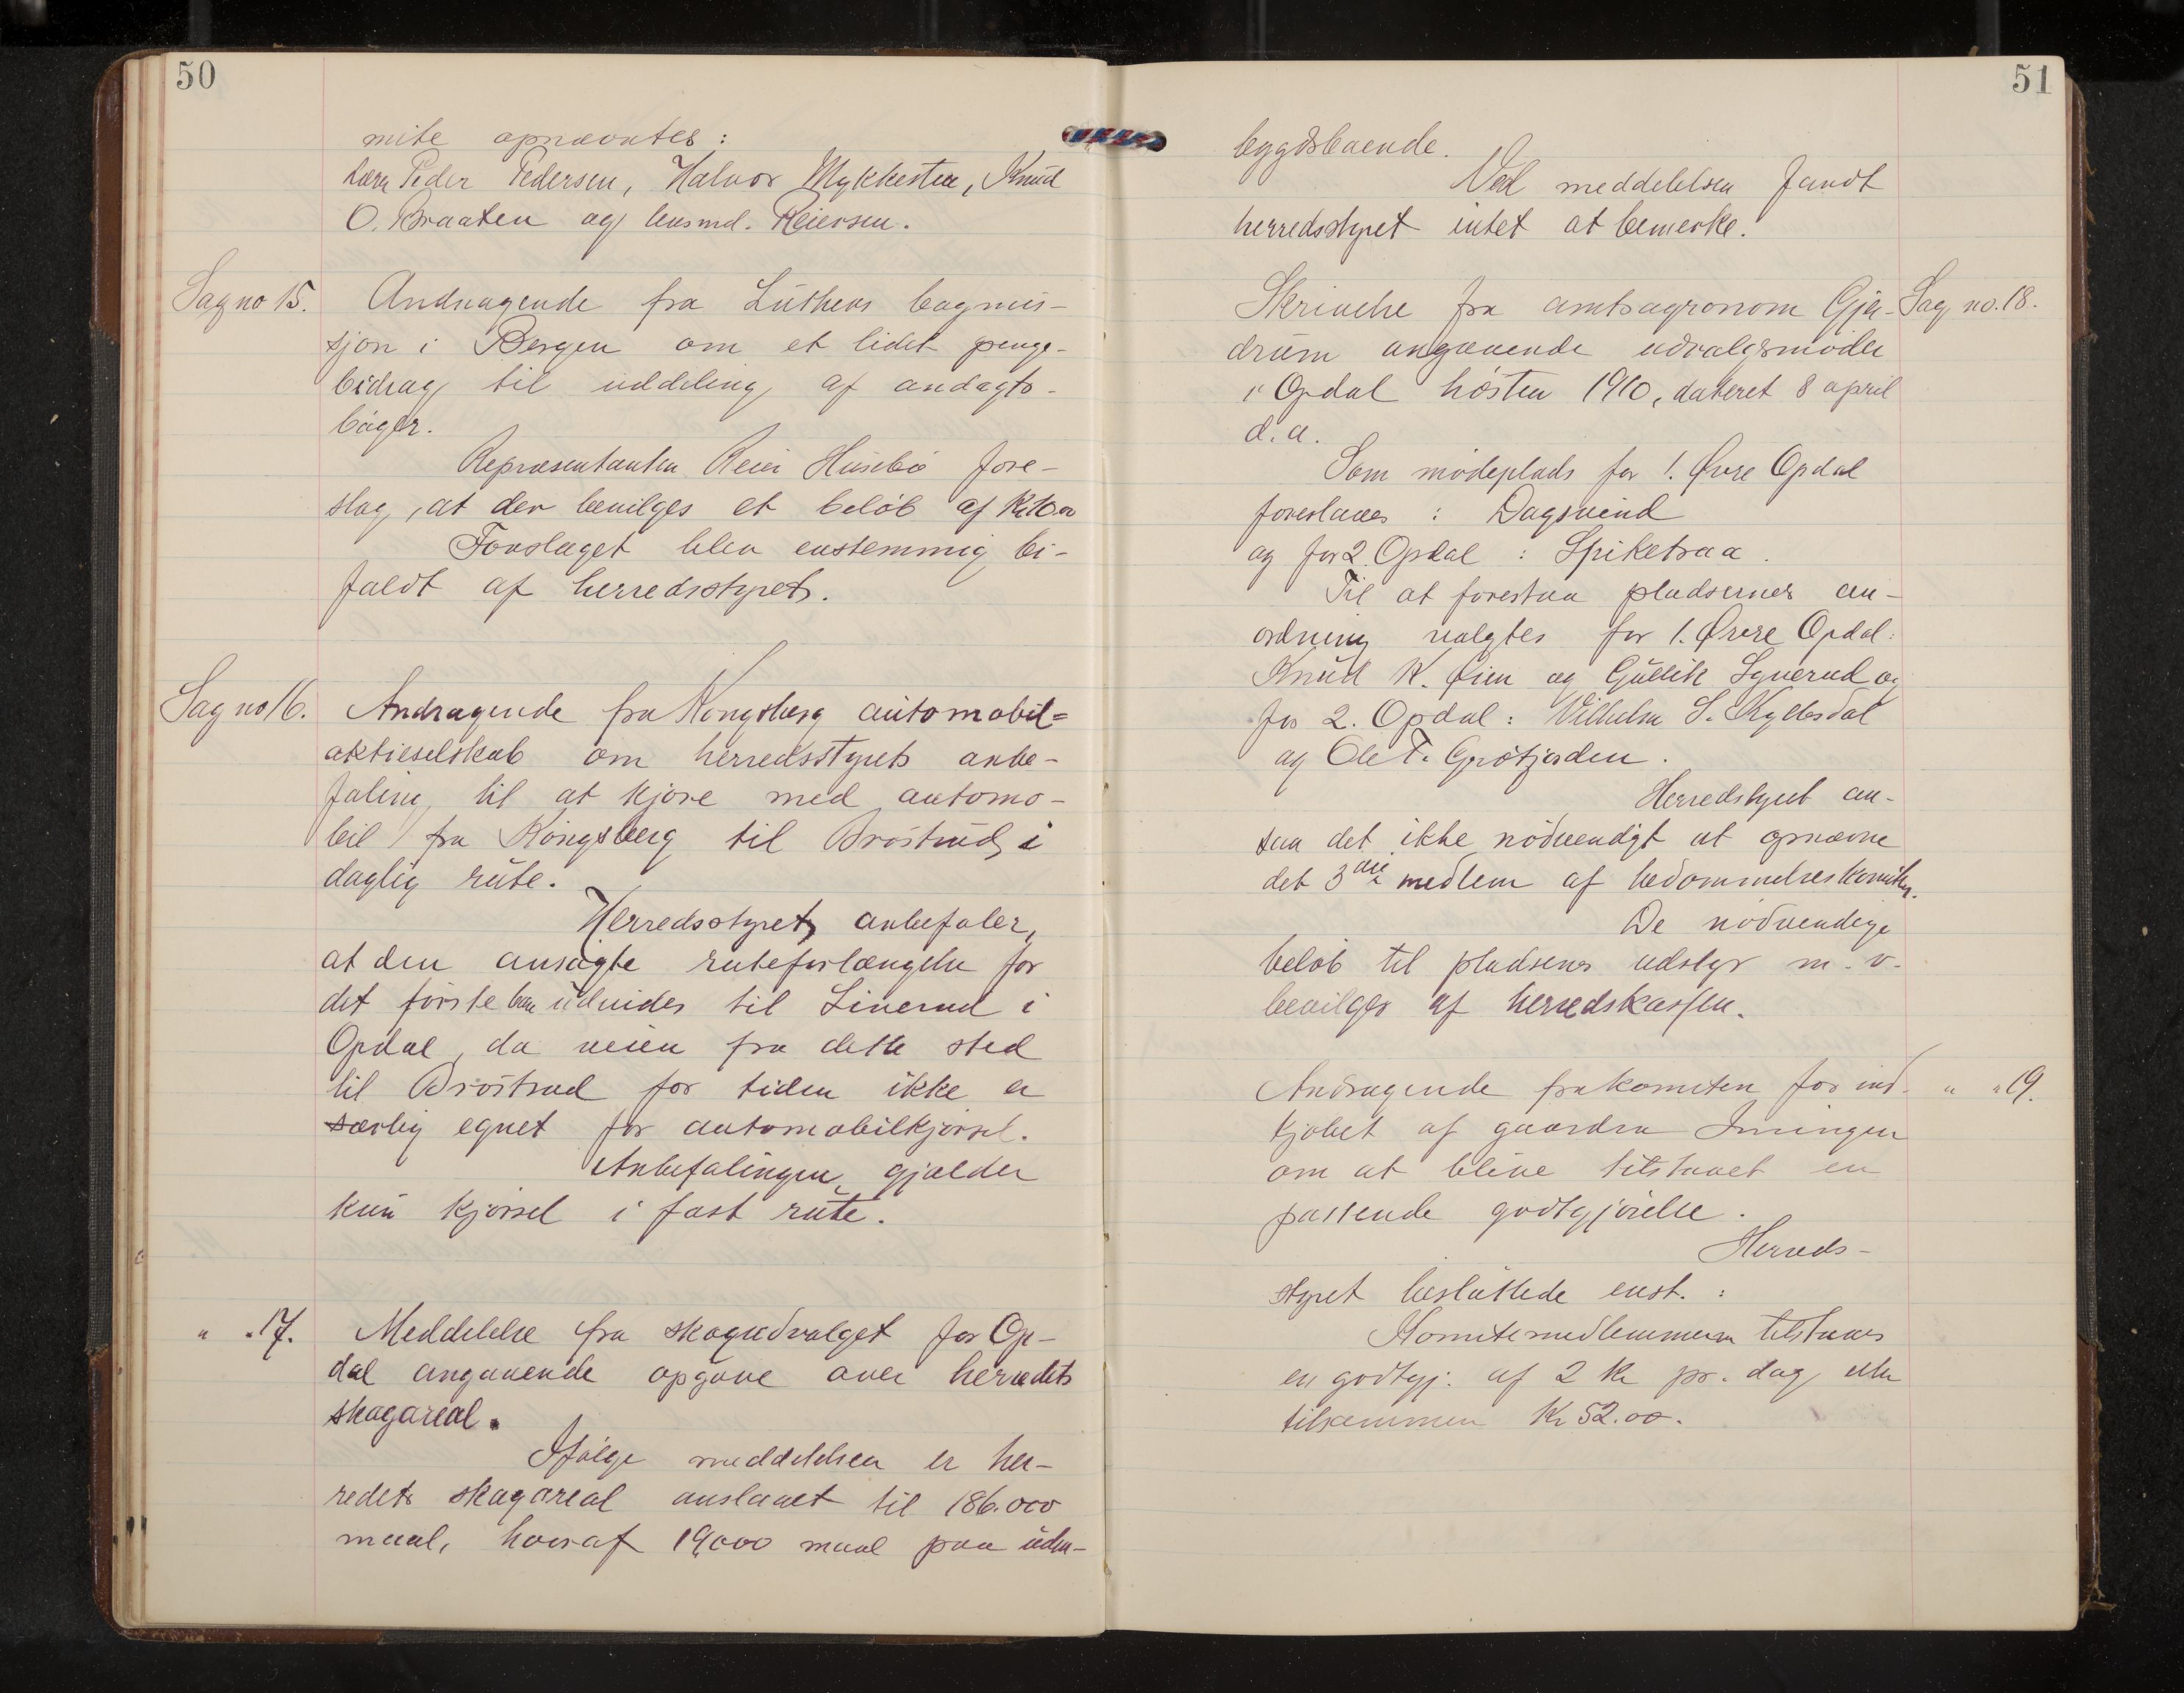 50
mite opnævntes:
Lærer Peder Pedersen, Halvor Mykkestu, Knud
O. Braaten og lensmd. Reiersen.
Sag no 15.
Andragende fra Luthers bogmis-
sjon i Bergen om et lidet penge-
bidrag til uddeling af andagts-
bøger.
Repræsentanten Reier Husebø fore-
slog, at der bevilges et beløb af Kr 10.00
Forslaget blev enstemmig bi-
faldt af herredsstyret.
Sag no 16.
Andragende fra Kongsberg automobil-
aktieselskab om herredsstyrets anbe-
faling til at kjøre med automo-
bil fra Kongsberg til Brøstrud i
daglig rute.
Herredsstyret anbefaler,
at den ansøgte ruteforlængelse for
det første kun udvides til Liverud i
Opdal, da veien fra dette sted
til Brøstrud for tiden ikke er
særlig egnet for automobilkjørsel.
Anbefalingen gjælder
kun kjørsel i fast rute.
" " 17.
Meddelelse fra skogudvalget for Op-
dal angaaende opgave over herredets
skogareal.
Ifølge meddelelsen er her-
redets skogareal anslaaet til 186.000
maal, hvoraf 19,000 maal paa uden-
51
bygdsboende.
Ved meddelelsen fandt
herredsstyret intet at bemerke.
Sag no. 18.
Skrivelse fra amtsagronom Gjer-
drum angaaende udvalgsmøder
i Opdal høsten 1910, dateret 8 april
d. a.
Som mødeplads for 1. Øvre Opdal
foreslaaes: Dagsvind
og for 2. Opdal: Spiketraa.
Til at forestaa pladsernes an-
ordning valgtes for 1. Øvre Opdal:
Knud K. Øien og Gullik Synerud og
for 2. Opdal: Vilhelm S. Kyllesdal
og Ole T. Grøtjorden.
Herredstyret an-
saa det ikke nødvendigt at opnævne
det 3die medlem af bedømmelseskomiteen.
De nødvendige
beløb til pladsenes udstyr m. v.
bevilges af herredskassen.
" " 19.
Andragende fra komiteen for ind-
kjøbet af gaardea Imingen
om at blive tilstaaet en
passende godtgjørelse.
Herreds-
styret besluttede enst.:
Komitemedlemmerne tilstaaes
en godtgj. af 2 kr pr. dag eller
tilsammen Kr 52.00.